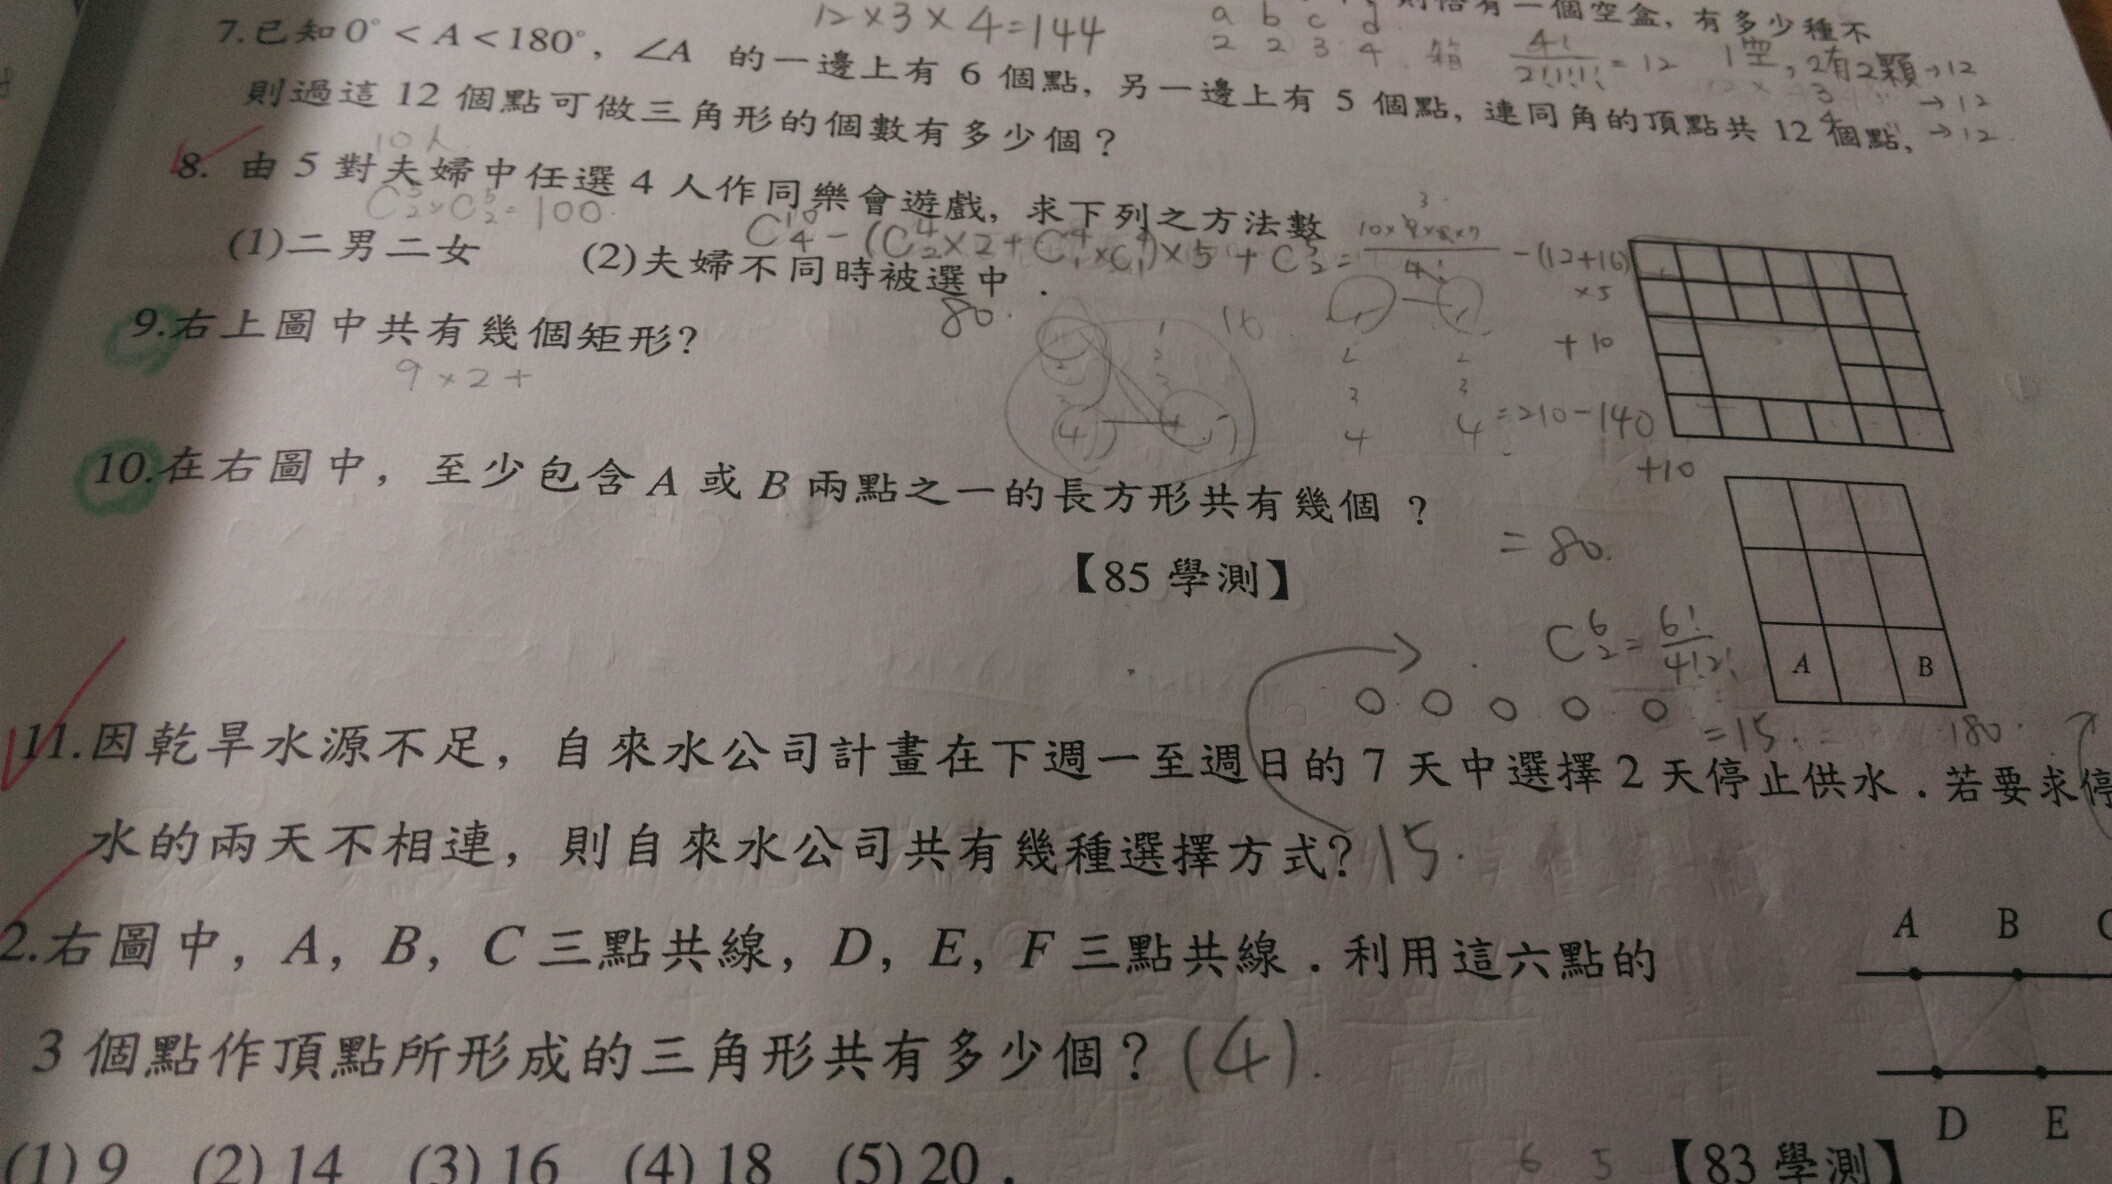 則恰有一個空盒, 有多少種不
12×3×4=144
a b c d
2 2 3 4 箱 4!/2!1!1! = 12 1空, 2有2顆→12
3 →12
4 →12
7.已知 0° < A < 180°, ∠A 的一邊上有 6 個點, 另一邊上有 5 個點, 連同角的頂點共 12 個點,
則過這 12 個點可做三角形的個數有多少個?
10人
8. 由 5 對夫婦中任選 4 人作同樂會遊戲, 求下列之方法數
(1)二男二女 (2)夫婦不同時被選中.
80.
9.右上圖中共有幾個矩形?
9×2+
×5
+10
=210-140
+10
=80.
10.在右圖中, 至少包含 A 或 B 兩點之一的長方形共有幾個 ?
【85 學測】
A B
=15.
180.
11.因乾旱水源不足, 自來水公司計畫在下週一至週日的 7 天中選擇 2 天停止供水.若要求停
水的兩天不相連, 則自來水公司共有幾種選擇方式? 15.
2.右圖中, A, B, C 三點共線, D, E, F 三點共線.利用這六點的
3 個點作頂點所形成的三角形共有多少個? (4).
A B C
D E
(1) 9 (2) 14 (3) 16 (4) 18 (5) 20 .
6 5
【83 學測】